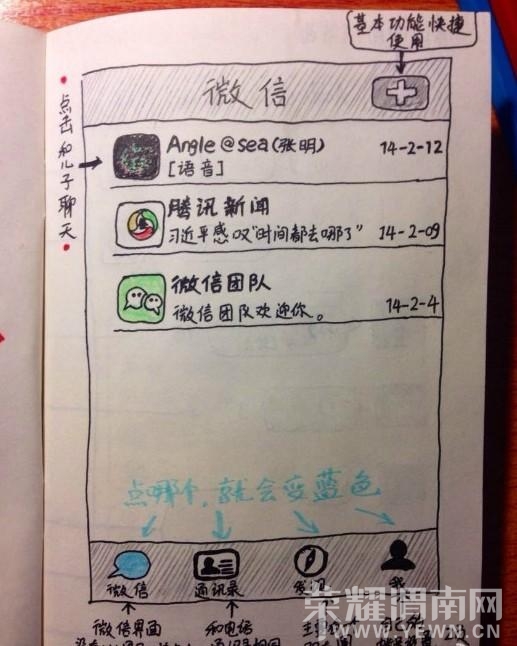 基本功能快捷
使用
微信
点击和儿子聊天
Angle@sea(张明)
14-2-12
[语音]
腾讯新闻
习近平感叹"时间都去哪了"
14-2-09
微信团队
微信团队欢迎你。
14-2-4
点哪个,就会变蓝色
微信
通讯录
发现
我
微信界面
和电话
荣耀渭南网